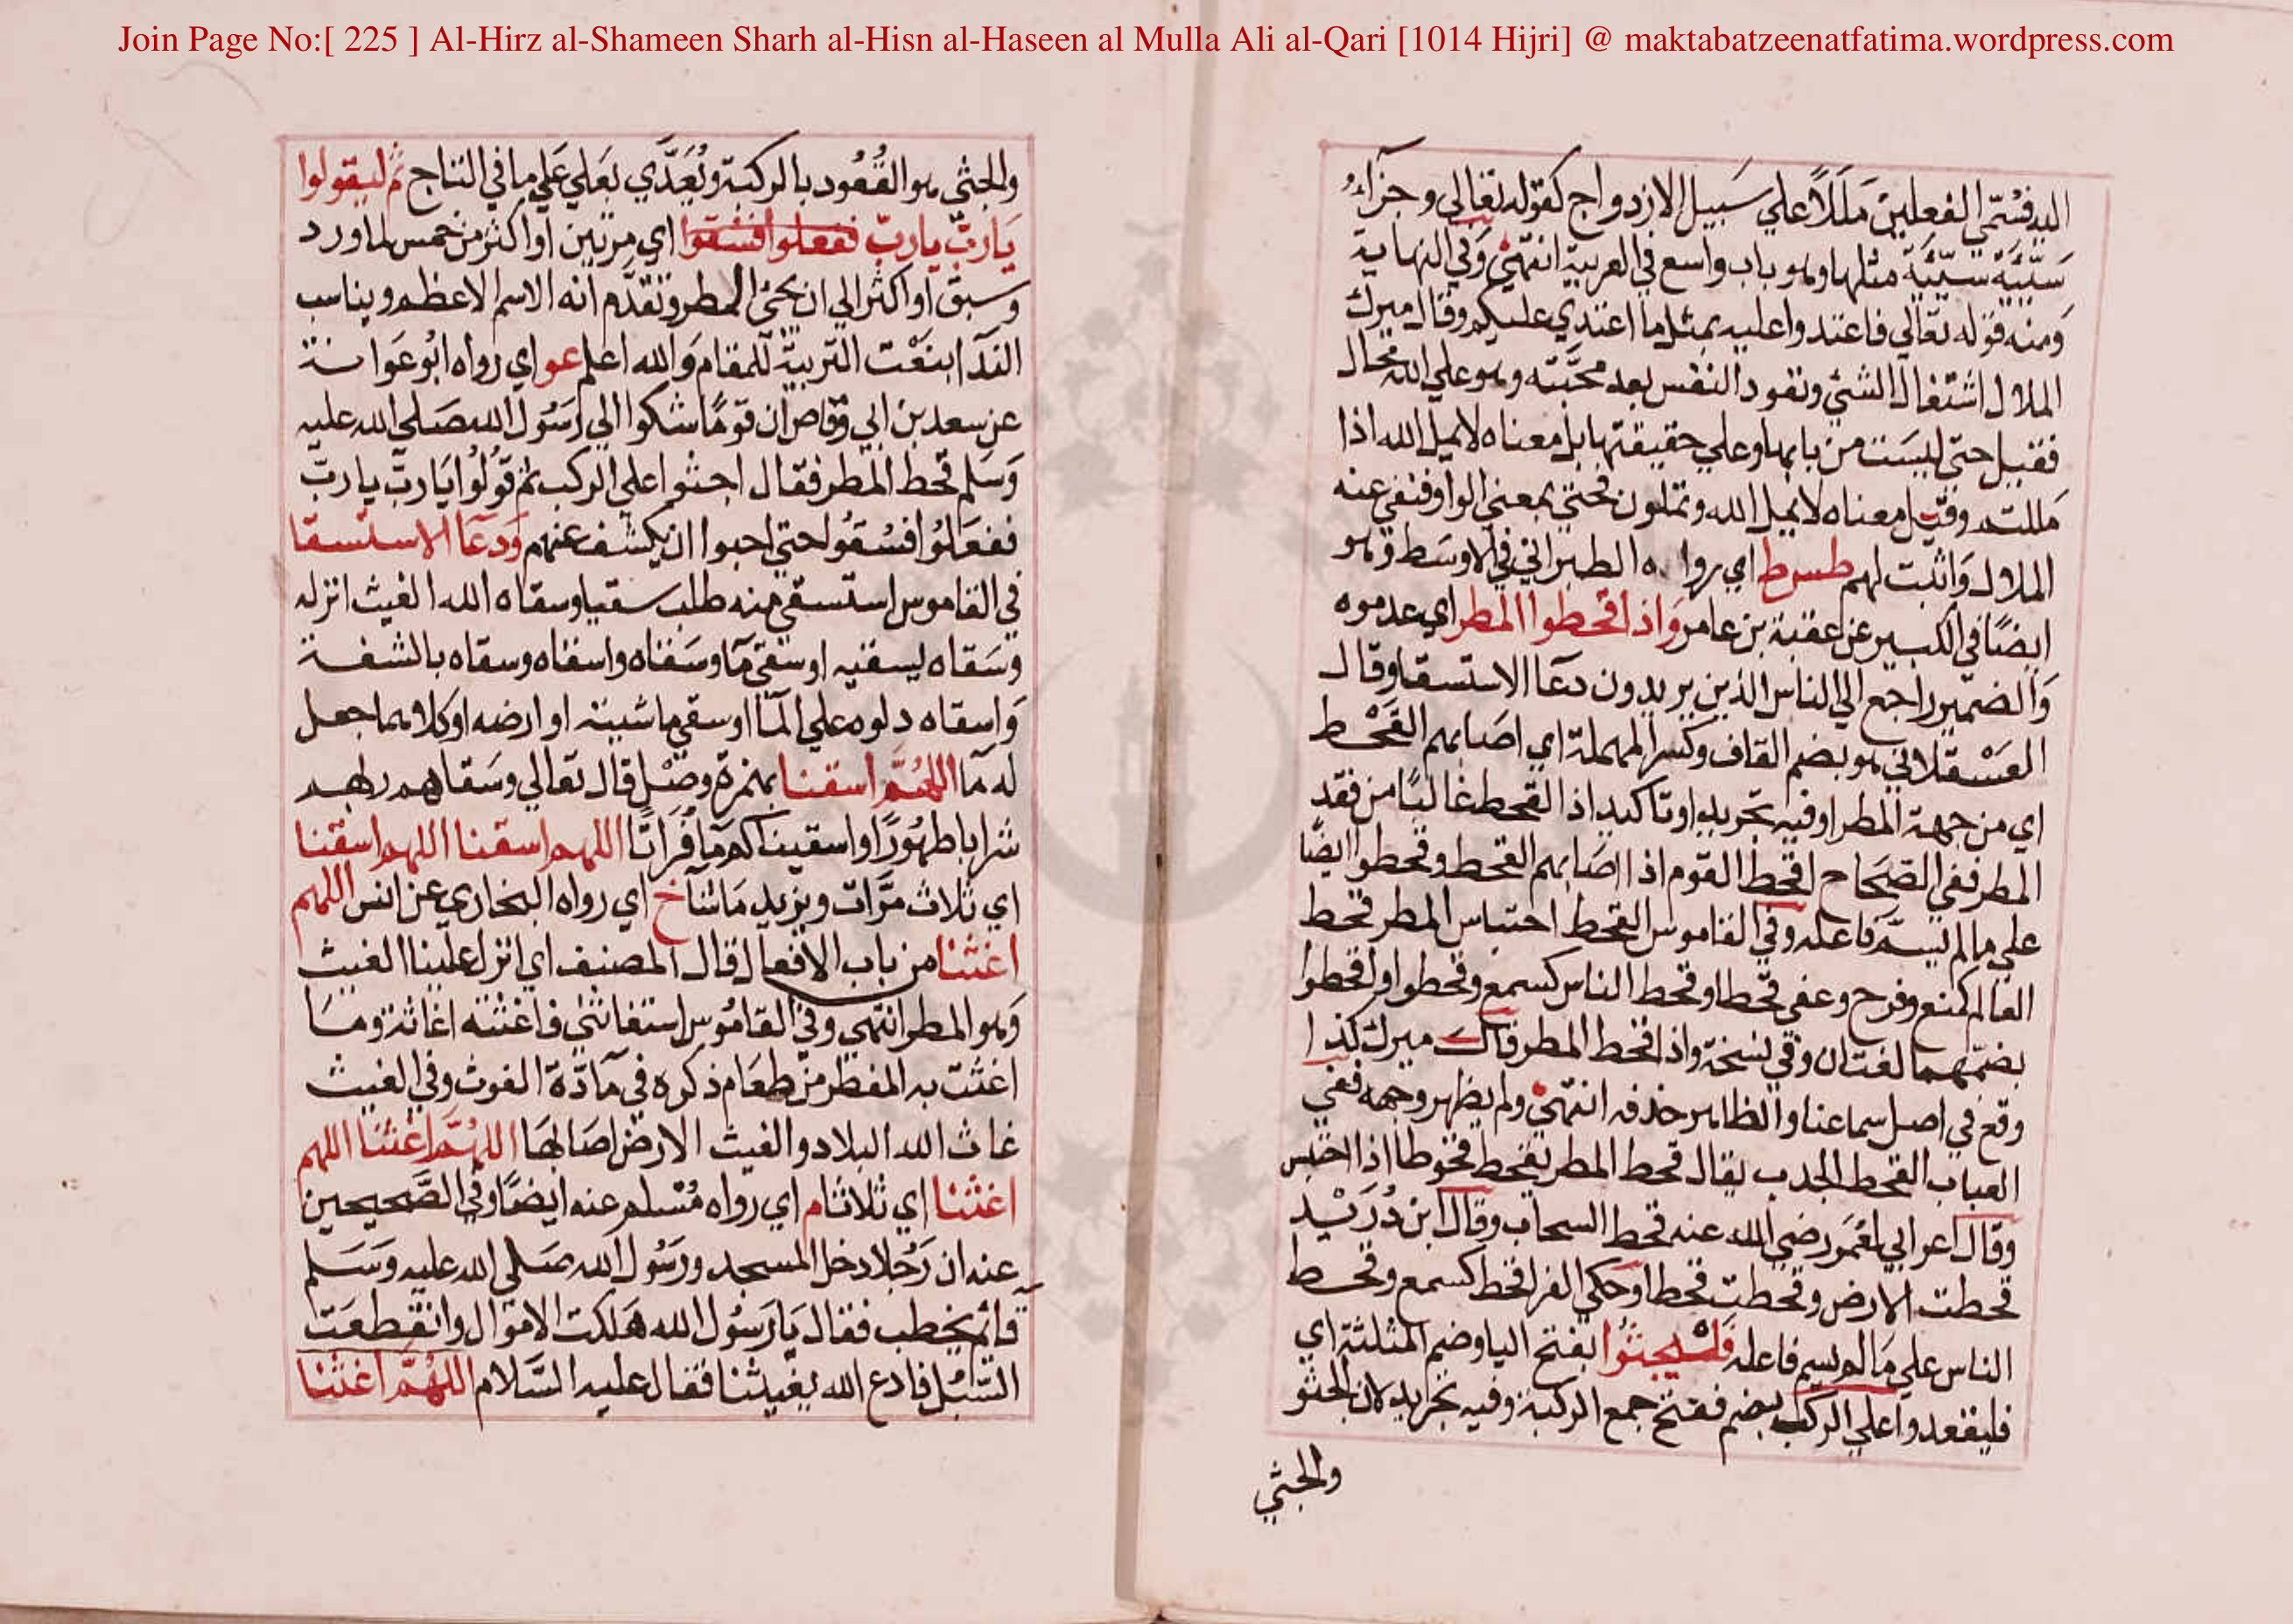 Join Page No:[ 225 ] Al-Hirz al-Shameen Sharh al-Hisn al-Haseen al Mulla Ali al-Qari [1014 Hijri] @ maktabatzeenatfatima.wordpress.com
اليه فسمي الفعلين مللا علي سبيل الازدواج كقوله تعالي وجزاء
سيئة سيئة مثلها وهو باب واسع في العربية انتهي وفي النهاية
ومنه قوله تعالي فاعتدوا عليه بمثل ما اعتدي عليكم وقال ميرك
الملال اشتغال الشي ونفود النفس بعد محبته وهو علي الله محال
فقيل حتي ليست من بابها وعلي حقيقتها بل معناه لا يمل الله اذا
مللتم وقيل معناه لا يمل الله وتملون فحتي بمعني الواو فنفي عنه
الملال واثبت لهم طس ط اي رواه الطبراني في الاوسط وهو
ايضا في الكبير عن عقبة بن عامر واذا اقحطوا المطر اي عدموه
والضمير راجع الي الناس الذين يريدون دعا الاستسقا وقال
العسقلاني هو بضم القاف وكسر المهملة اي اصابهم القحط
اي من جهة المطر او فيه تجريد او تاكيد اذ القحط غالبا من فقد
المطر ففي الصحاح اقحط القوم اذا اصابهم القحط وقحطوا ايضا
علي ما لم يسم فاعله وفي القاموس القحط احتباس المطر قحط
العام كمنع وفرح وعني قحطا وقحط الناس كسمع وقحطوا واقحطوا
بضمهما لغتان وفي نسخة واذا اقحط المطر قال ميرك كذا
وقع في اصل سماعنا والظاهر حذفه انتهي ولم يظهر وجهه ففي
العباب القحط الجدب يقال قحط المطر يقحط قحوطا اذا احتبس
وقال اعرابي لعمر رضي الله عنه قحط السحاب وقال ابن دريد
قحطت الارض وقحطت قحطا وحكي الفرا قحط كسمع وقحط
الناس علي ما لم يسم فاعله فليجثوا بفتح اليا وضم المثلثة اي
فليقعدوا علي الركب بضم ففتح جمع الركبة وفيه تجريد لان الجثو
والجثي
والجثي هو القعود بالركبة ويعدي بعلي علي ما في التاج ثم ليقولوا
يارب يارب ففعلوا فسقوا اي مرتين او اكثر من خمس لما ورد
وسبق او اكثر الي ان يجئ المطر وتقدم انه الاسم الاعظم ويناسب
الندا بنعت التربية للمقام والله اعلم عو اي رواه ابو عوانة
عن سعد بن ابي وقاص ان قوما شكوا الي رسول الله صلي الله عليه
وسلم قحط المطر فقال اجثوا علي الركب ثم قولوا يارب يارب
ففعلوا فسقوا حتي احبوا ان يكشف عنهم ودعا الاستسقا
في القاموس استسقي منه طلب سقيا وسقاه الله الغيث انزله
وسقاه يسقيه او سقي ما وسقاه واسقاه وسقاه بالشفة
واسقاه دلوه علي الما او سقي ماشيته او ارضه او كلاهما جعل
له ما اللهم اسقنا بهمزة وصل قال تعالي وسقاهم ربهم
شرابا طهورا واسقيناكم ما فراتا اللهم اسقنا اللهم اسقنا
اي ثلاث مرات ويزيد ما شا خ اي رواه البخاري عن انس اللهم
اغثنا من باب الافعال قال المصنف اي انزل علينا الغيث
وهو المطر انتهي وفي القاموس استغاثني فاغثته اغاثة وما
اغثت به المضطر من طعام ذكره في مادة الغوث وفي الغيث
غاث الله البلاد والغيث الارض اصابها اللهم اغثنا اللهم
اغثنا اي ثلاثا م اي رواه مسلم عنه ايضا وفي الصحيحين
عنه ان رجلا دخل المسجد ورسول الله صلي الله عليه وسلم
قائم يخطب فقال يا رسول الله هلكت الاموال وانقطعت
السبل فادع الله يغيثنا فقال عليه السلام اللهم اغثنا